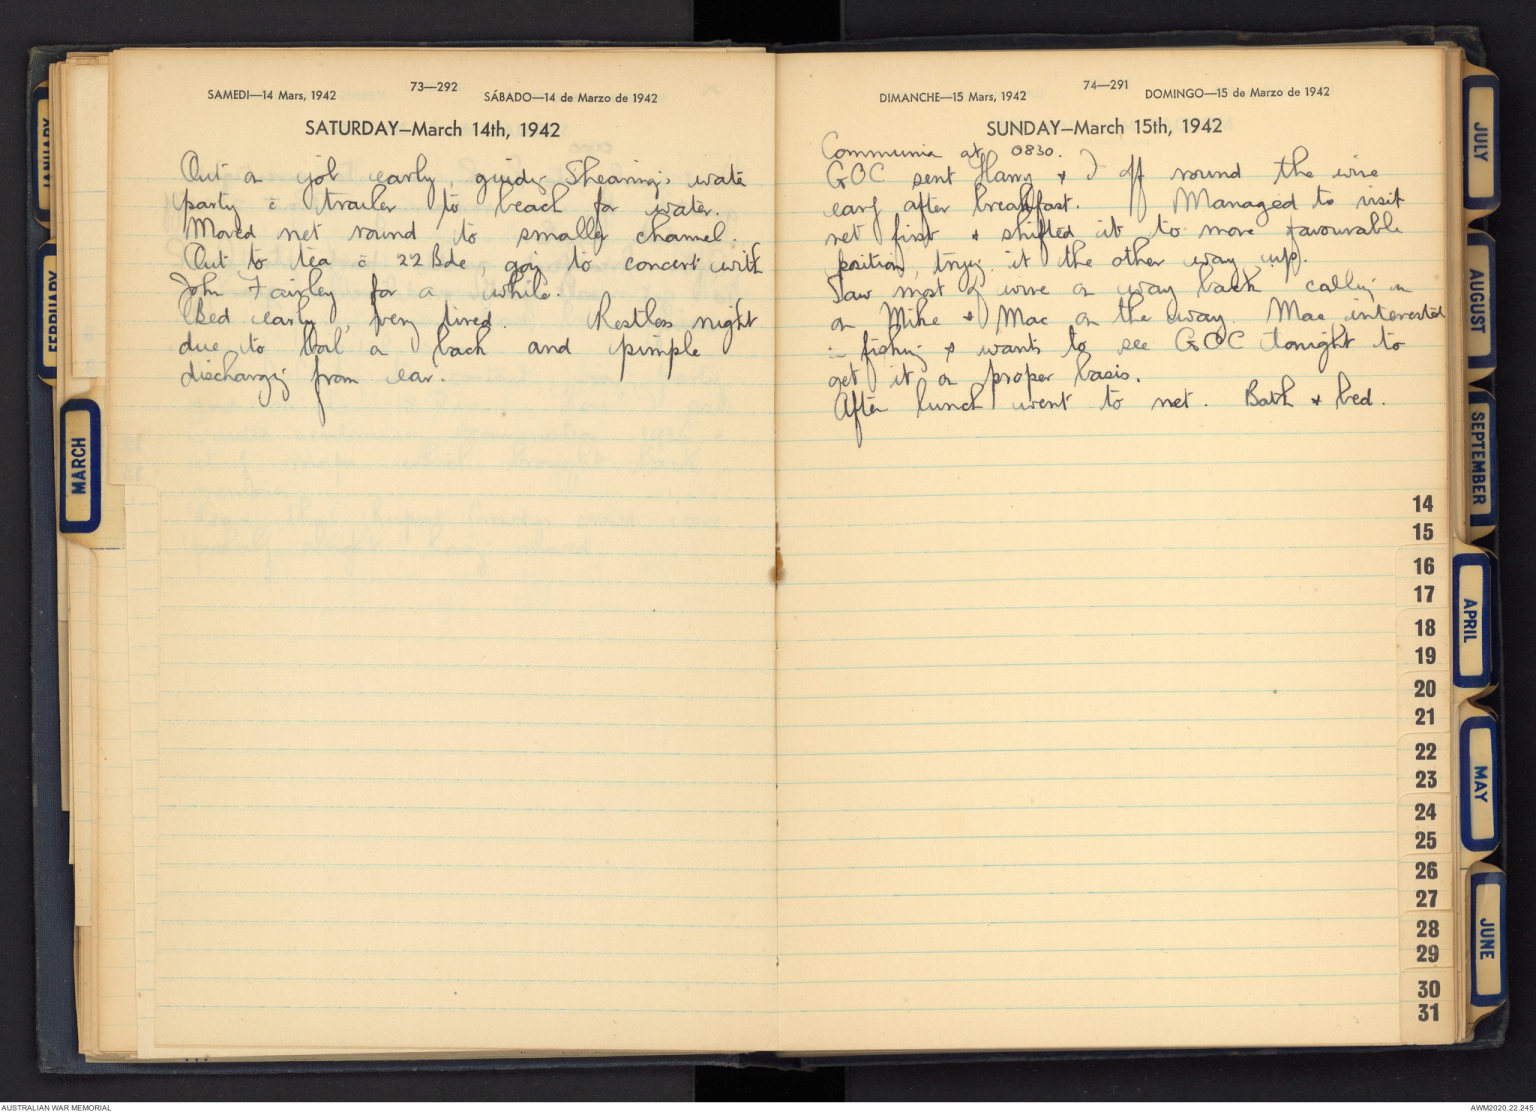 JANUARY
FEBRUARY
MARCH
SAMEDI—14 Mars, 1942
73—292
SÁBADO—14 de Marzo de 1942
SATURDAY—March 14th, 1942
Out on job early, guiding Shearing's water
party c̄ trailer to beach for water.
Moved net round to smaller channel.
Out to tea c̄ 22 Bde, going to concert with
John Fairley for a while.
Bed early, very tired. Restless night
due to boil on back and pimple
discharging from ear.
DIMANCHE—15 Mars, 1942
74—291
DOMINGO—15 de Marzo de 1942
SUNDAY—March 15th, 1942
Communion at 0830.
GOC sent Harry & I off round the wire
early after breakfast. Managed to visit
net first & shifted it to more favourable
position, trying it the other way up.
Saw most of wire on way back calling in
on Mike & Mac on the way. Mac interested
in fishing & wants to see GOC tonight to
get it on proper basis.
After lunch went to net. Bath & bed.
14
15
16
17
18
19
20
21
22
23
24
25
26
27
28
29
30
31
JULY
AUGUST
SEPTEMBER
APRIL
MAY
JUNE
AUSTRALIAN WAR MEMORIAL
AWM2020.22.245